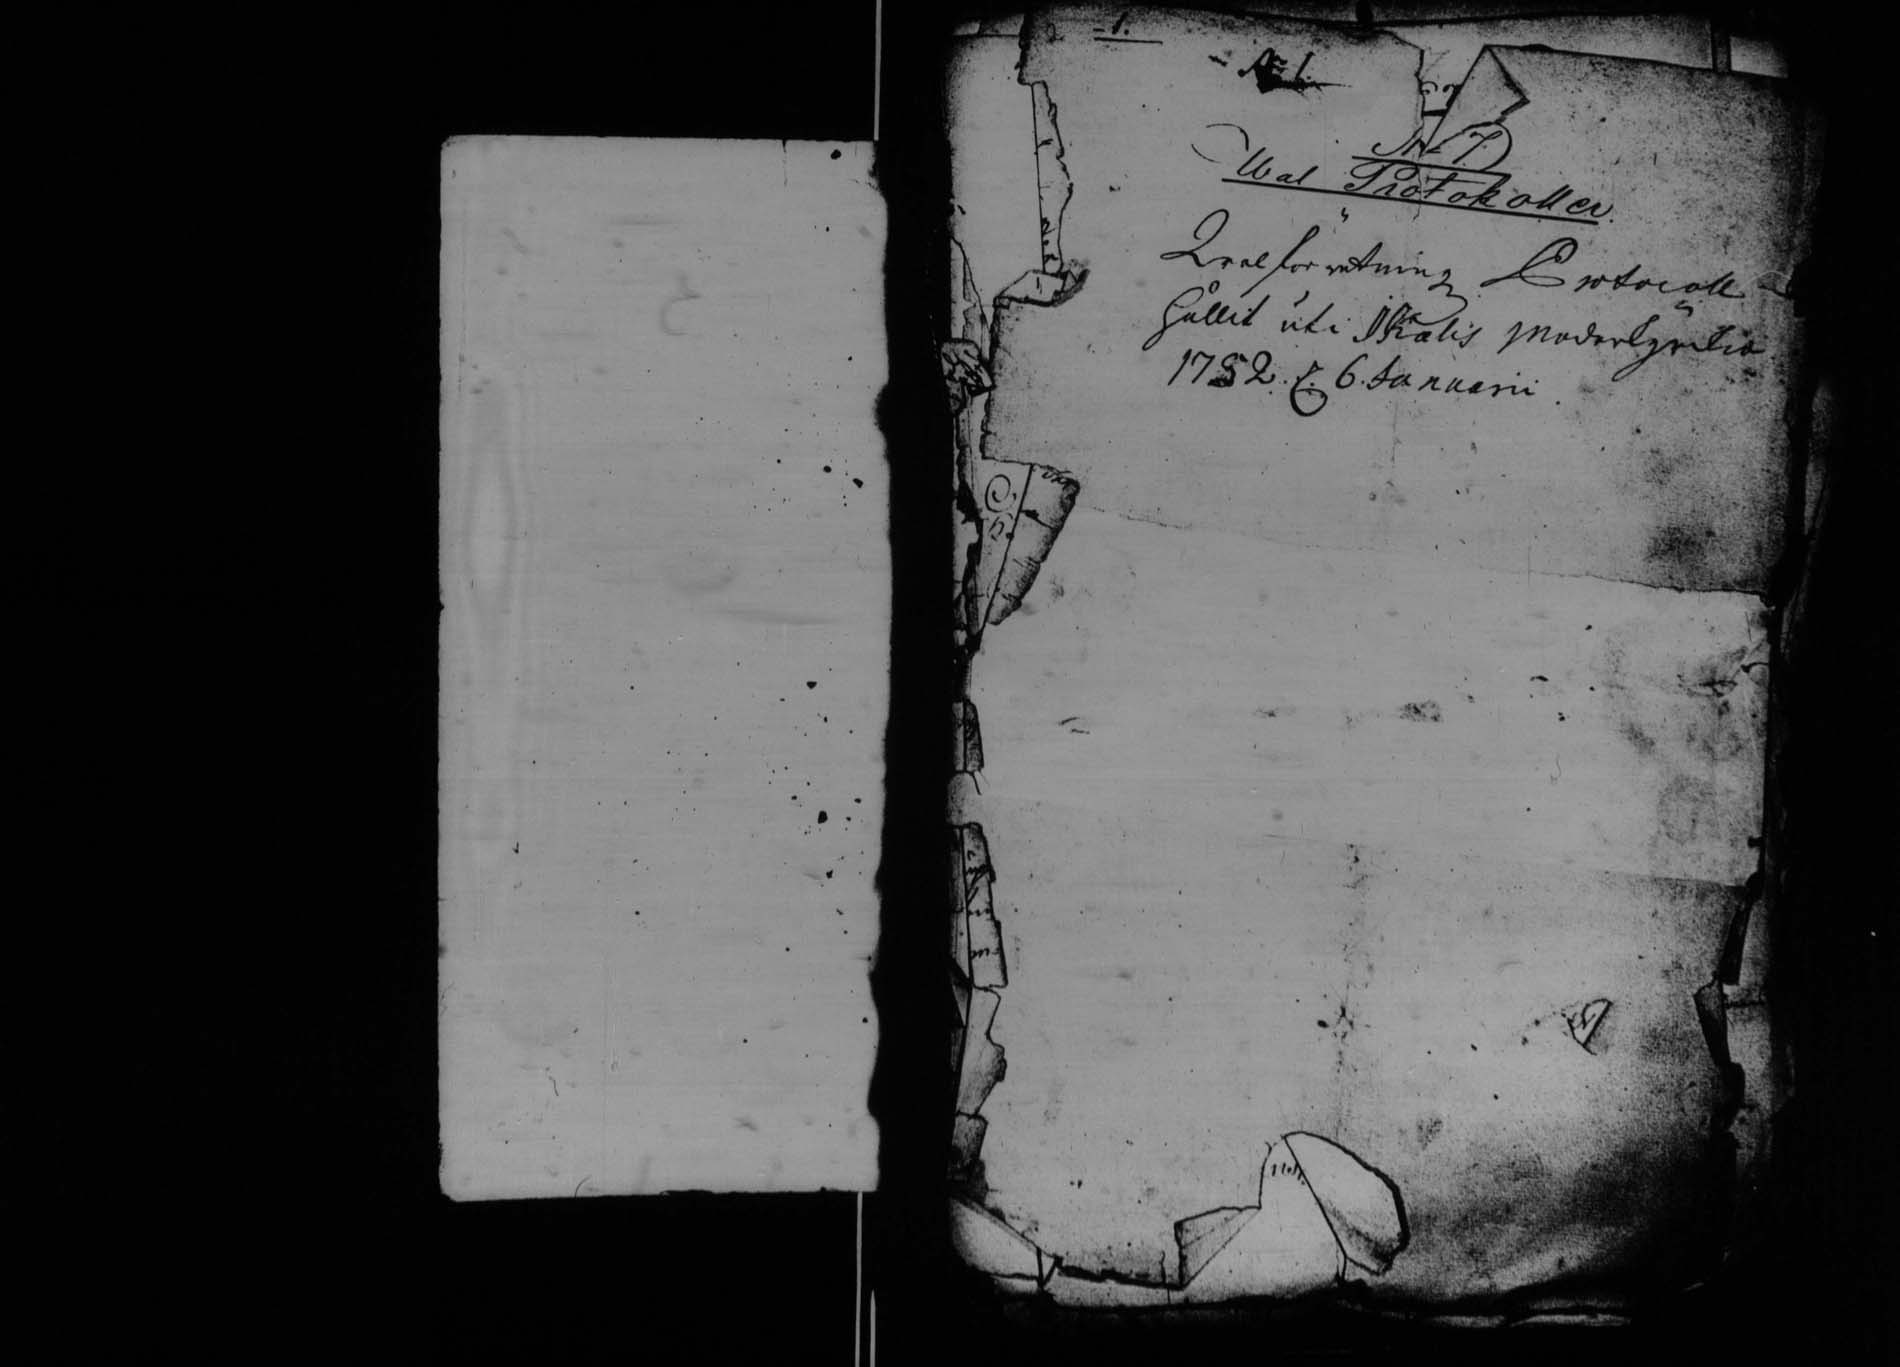 1.
No 1.
No 7
Wal Protokoller.
Qval förrettning Protocoll
Hållit uti Ikalis Moderkyrckia
1752. d. 6. Januarii.